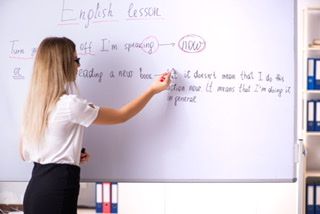 English lesson
Turn off I'm speaking → now
or reading a new book it doesn't mean that I do this
action now It means that I'm doing it
in general